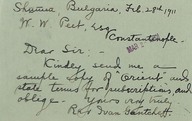 Shumna Bulgaria, Feb. 28th, 1911
W. W. Peet, Esq
Constantinople.
Dear Sir:-
Kindly send me a
sample copy of "Orient" and
state terms for subscriptions, and
oblige - Yours very truly,
Rev Ivan